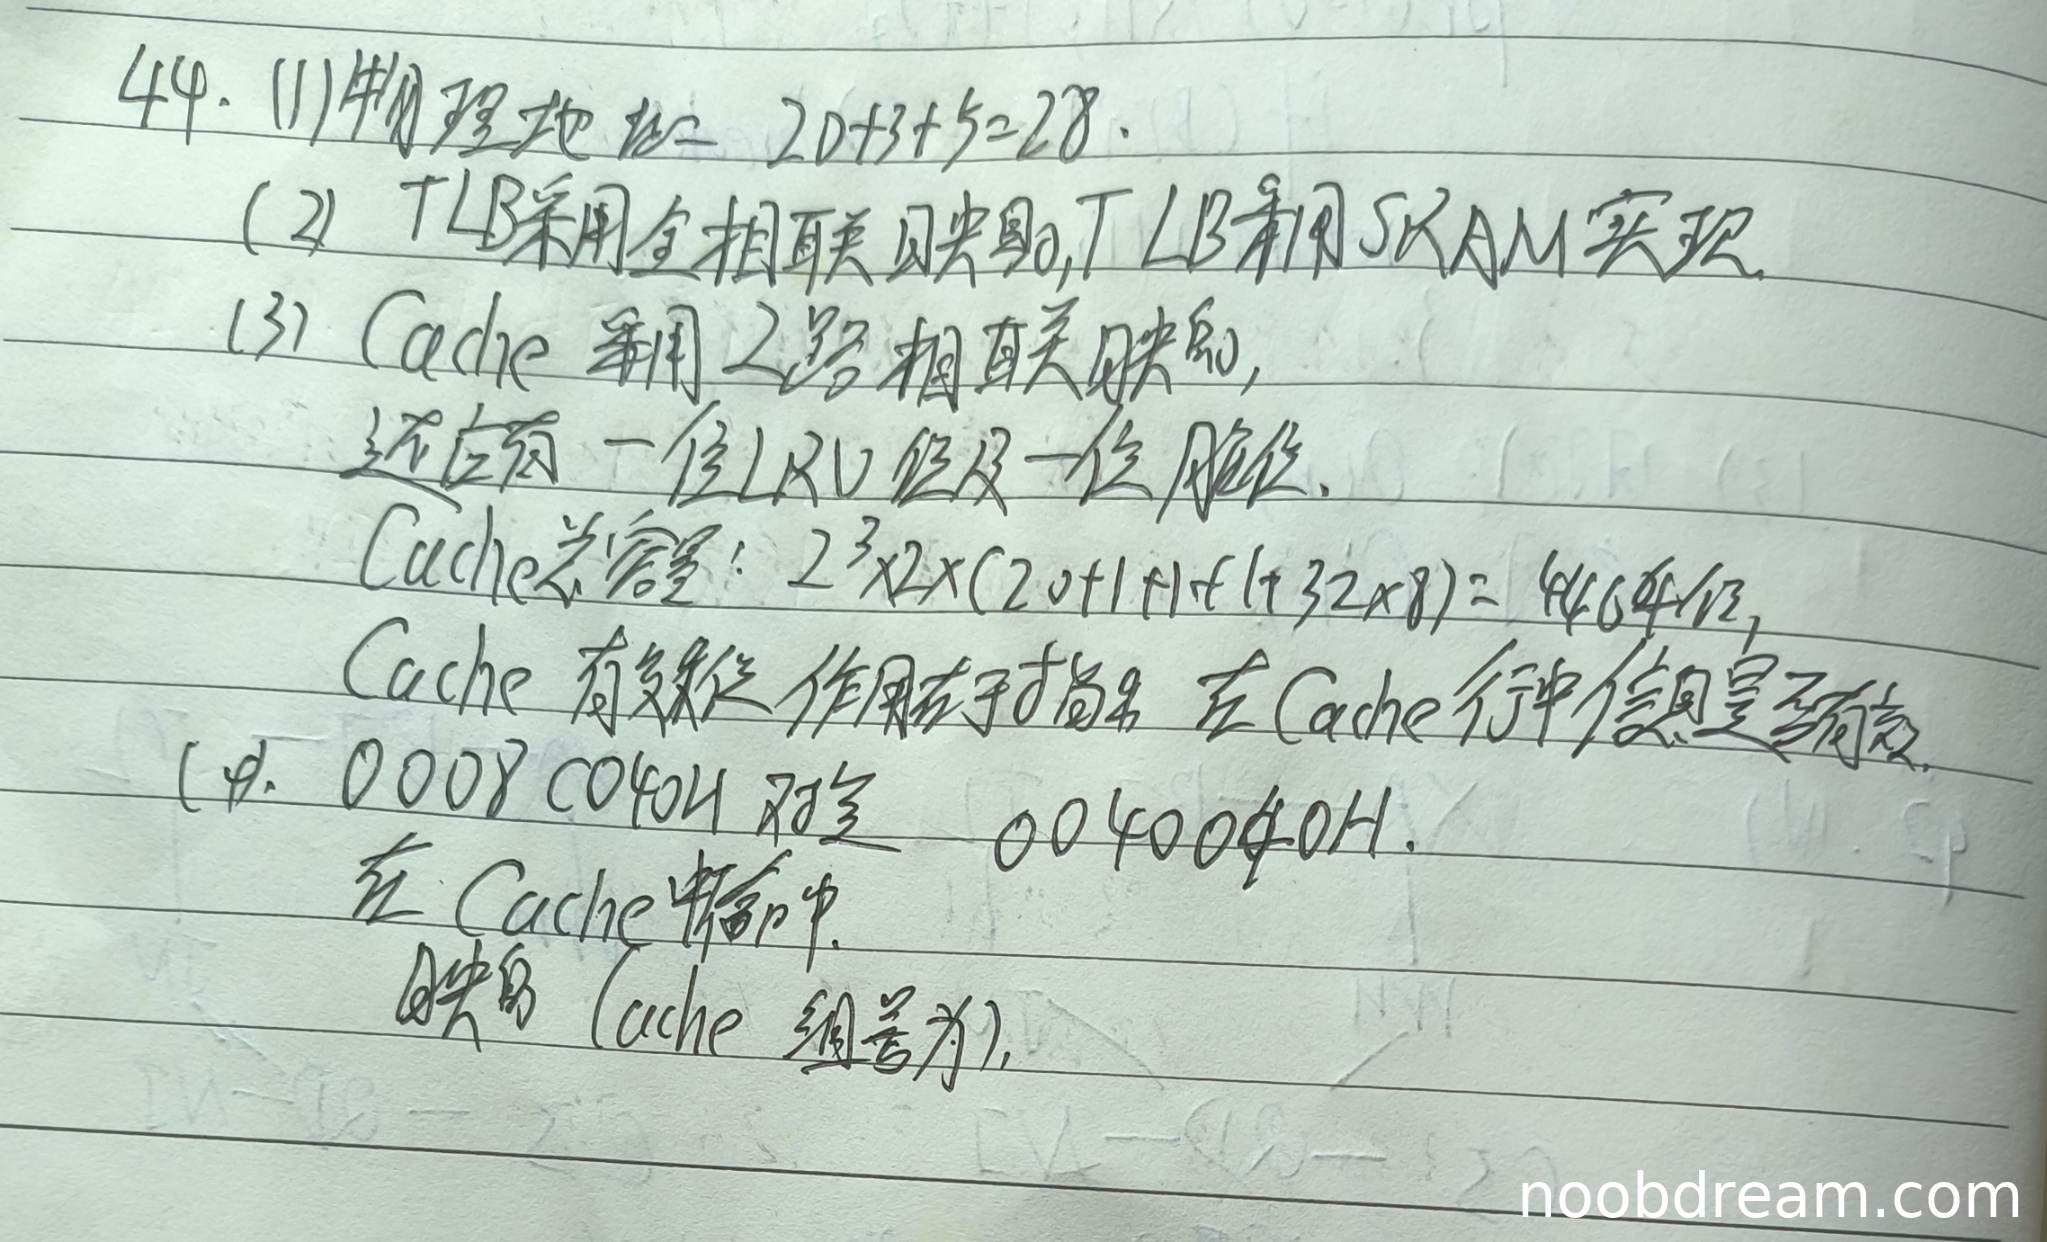 44. (1)物理地址= 20+3+5=28.
(2) TLB采用全相联映射,TLB采用SRAM实现.
(3) Cache 采用2路相联映射,
还应有一位LRU位及一位脏位.
Cache总容量: 2³×2×(20+1+1+1+32×8)= 4464位,
Cache 有效位作用在于指出 在Cache行中信息是否有效.
(4). 0008C040H 对应 0040040H.
在 Cache中命中.
映射 Cache 组号为
noobdream.com